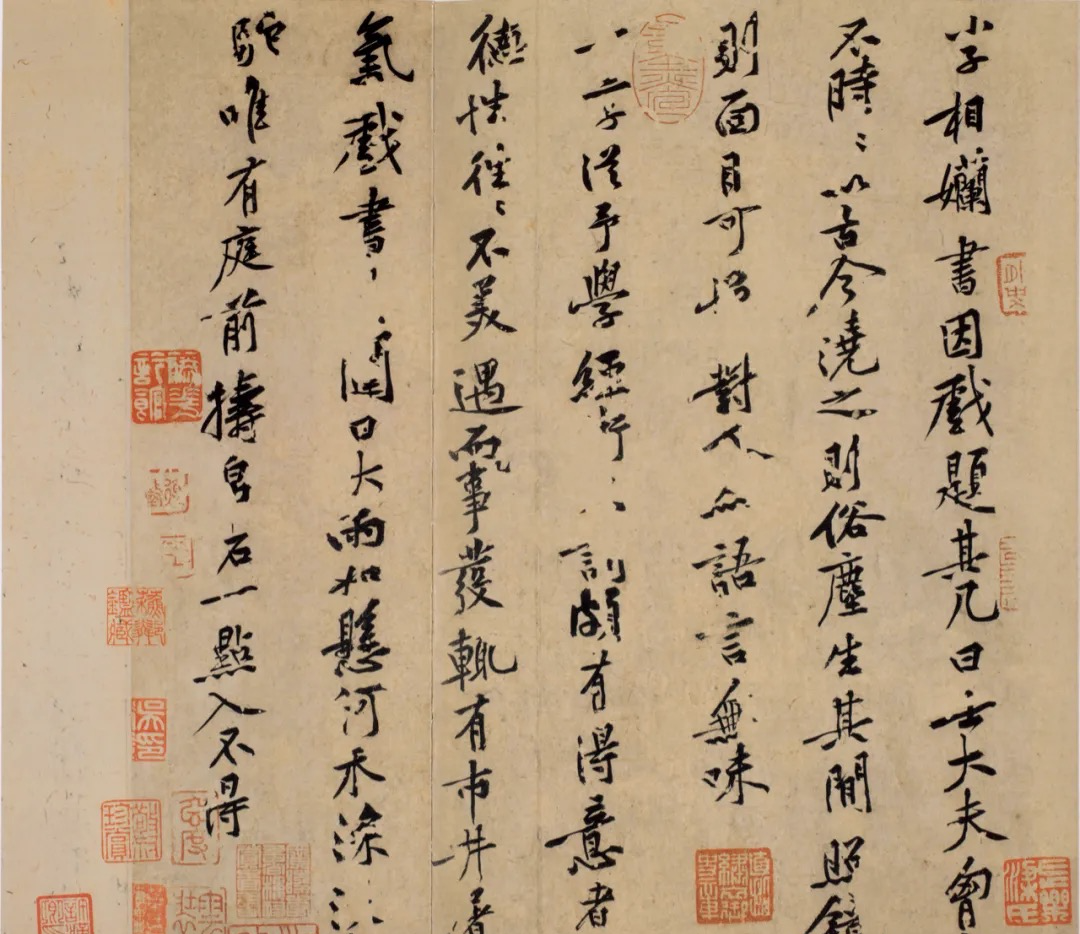 小子相孄書因戲題其几曰士大夫胷
不時〻以古今澆之則俗塵生其間照鏡
則面目可憎對人亦語言無味
一二子從予學經行訓頗有得意者
德性往〻不美遇事發輒有市井
氣戲書
曰大雨如懸河禾深
駝唯有庭前擣帛石一點入不得